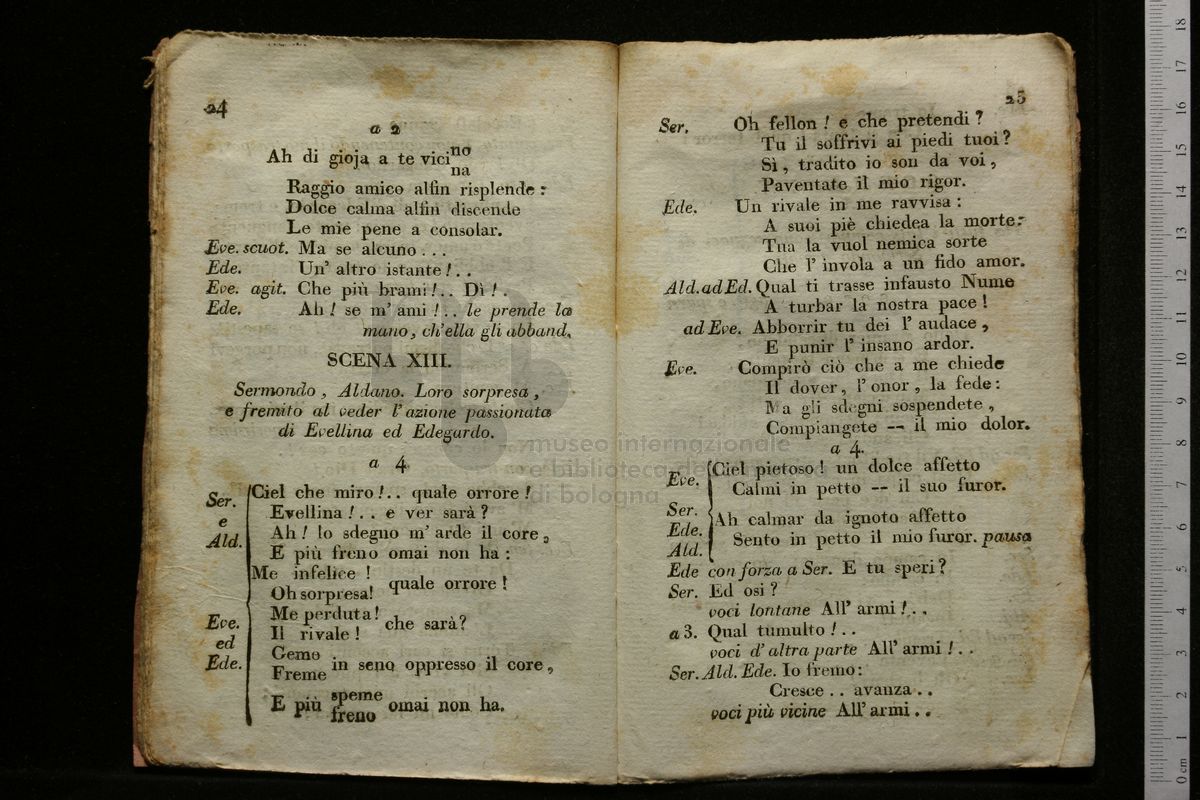 24
a 2
Ah di gioja a te vicino
na
Raggio amico alfin risplende:
Dolce calma alfin discende
Le mie pene a consolar.
Eve. scuot. Ma se alcuno...
Ede. Un' altro istante!..
Eve. agit. Che più brami!.. Dì!.
Ede. Ah! se m' ami!.. le prende la
mano, ch'ella gli abband.
SCENA XIII.
Sermondo, Aldano. Loro sorpresa,
e fremito al veder l'azione passionata
di Evellina ed Edegardo.
a 4.
Ser. e Ald. Ciel che miro!.. quale orrore!
Evellina!.. e ver sarà?
Ah! lo sdegno m' arde il core,
E più freno omai non ha:
Eve. ed Ede. Me infelice!
Oh sorpresa! quale orrore!
Me perduta!
Il rivale! che sarà?
Gemo
Freme in seno oppresso il core,
E più speme
freno omai non ha.
25
Ser. Oh fellon! e che pretendi?
Tu il soffrivi ai piedi tuoi?
Sì, tradito io son da voi,
Paventate il mio rigor.
Ede. Un rivale in me ravvisa:
A suoi piè chiedea la morte:
Tua la vuol nemica sorte
Che l' invola a un fido amor.
Ald. ad Ed. Qual ti trasse infausto Nume
A turbar la nostra pace!
ad Eve. Abborrir tu dei l' audace,
E punir l' insano ardor.
Eve. Compirò ciò che a me chiede
Il dover, l' onor, la fede:
Ma gli sdegni sospendete,
Compiangete -- il mio dolor.
a 4.
Eve. Ciel pietoso! un dolce affetto
Calmi in petto -- il suo furor.
Ser. Ede. Ald. Ah calmar da ignoto affetto
Sento in petto il mio furor. pausa
Ede con forza a Ser. E tu speri?
Ser. Ed osi?
voci lontane All' armi!..
a 3. Qual tumulto!..
voci d' altra parte All' armi!..
Ser. Ald. Ede. Io fremo:
Cresce.. avanza..
voci più vicine All' armi..
museo internazionale
e biblioteca de
di bologna
0 cm 1 2 3 4 5 6 7 8 9 10 11 12 13 14 15 16 17 18